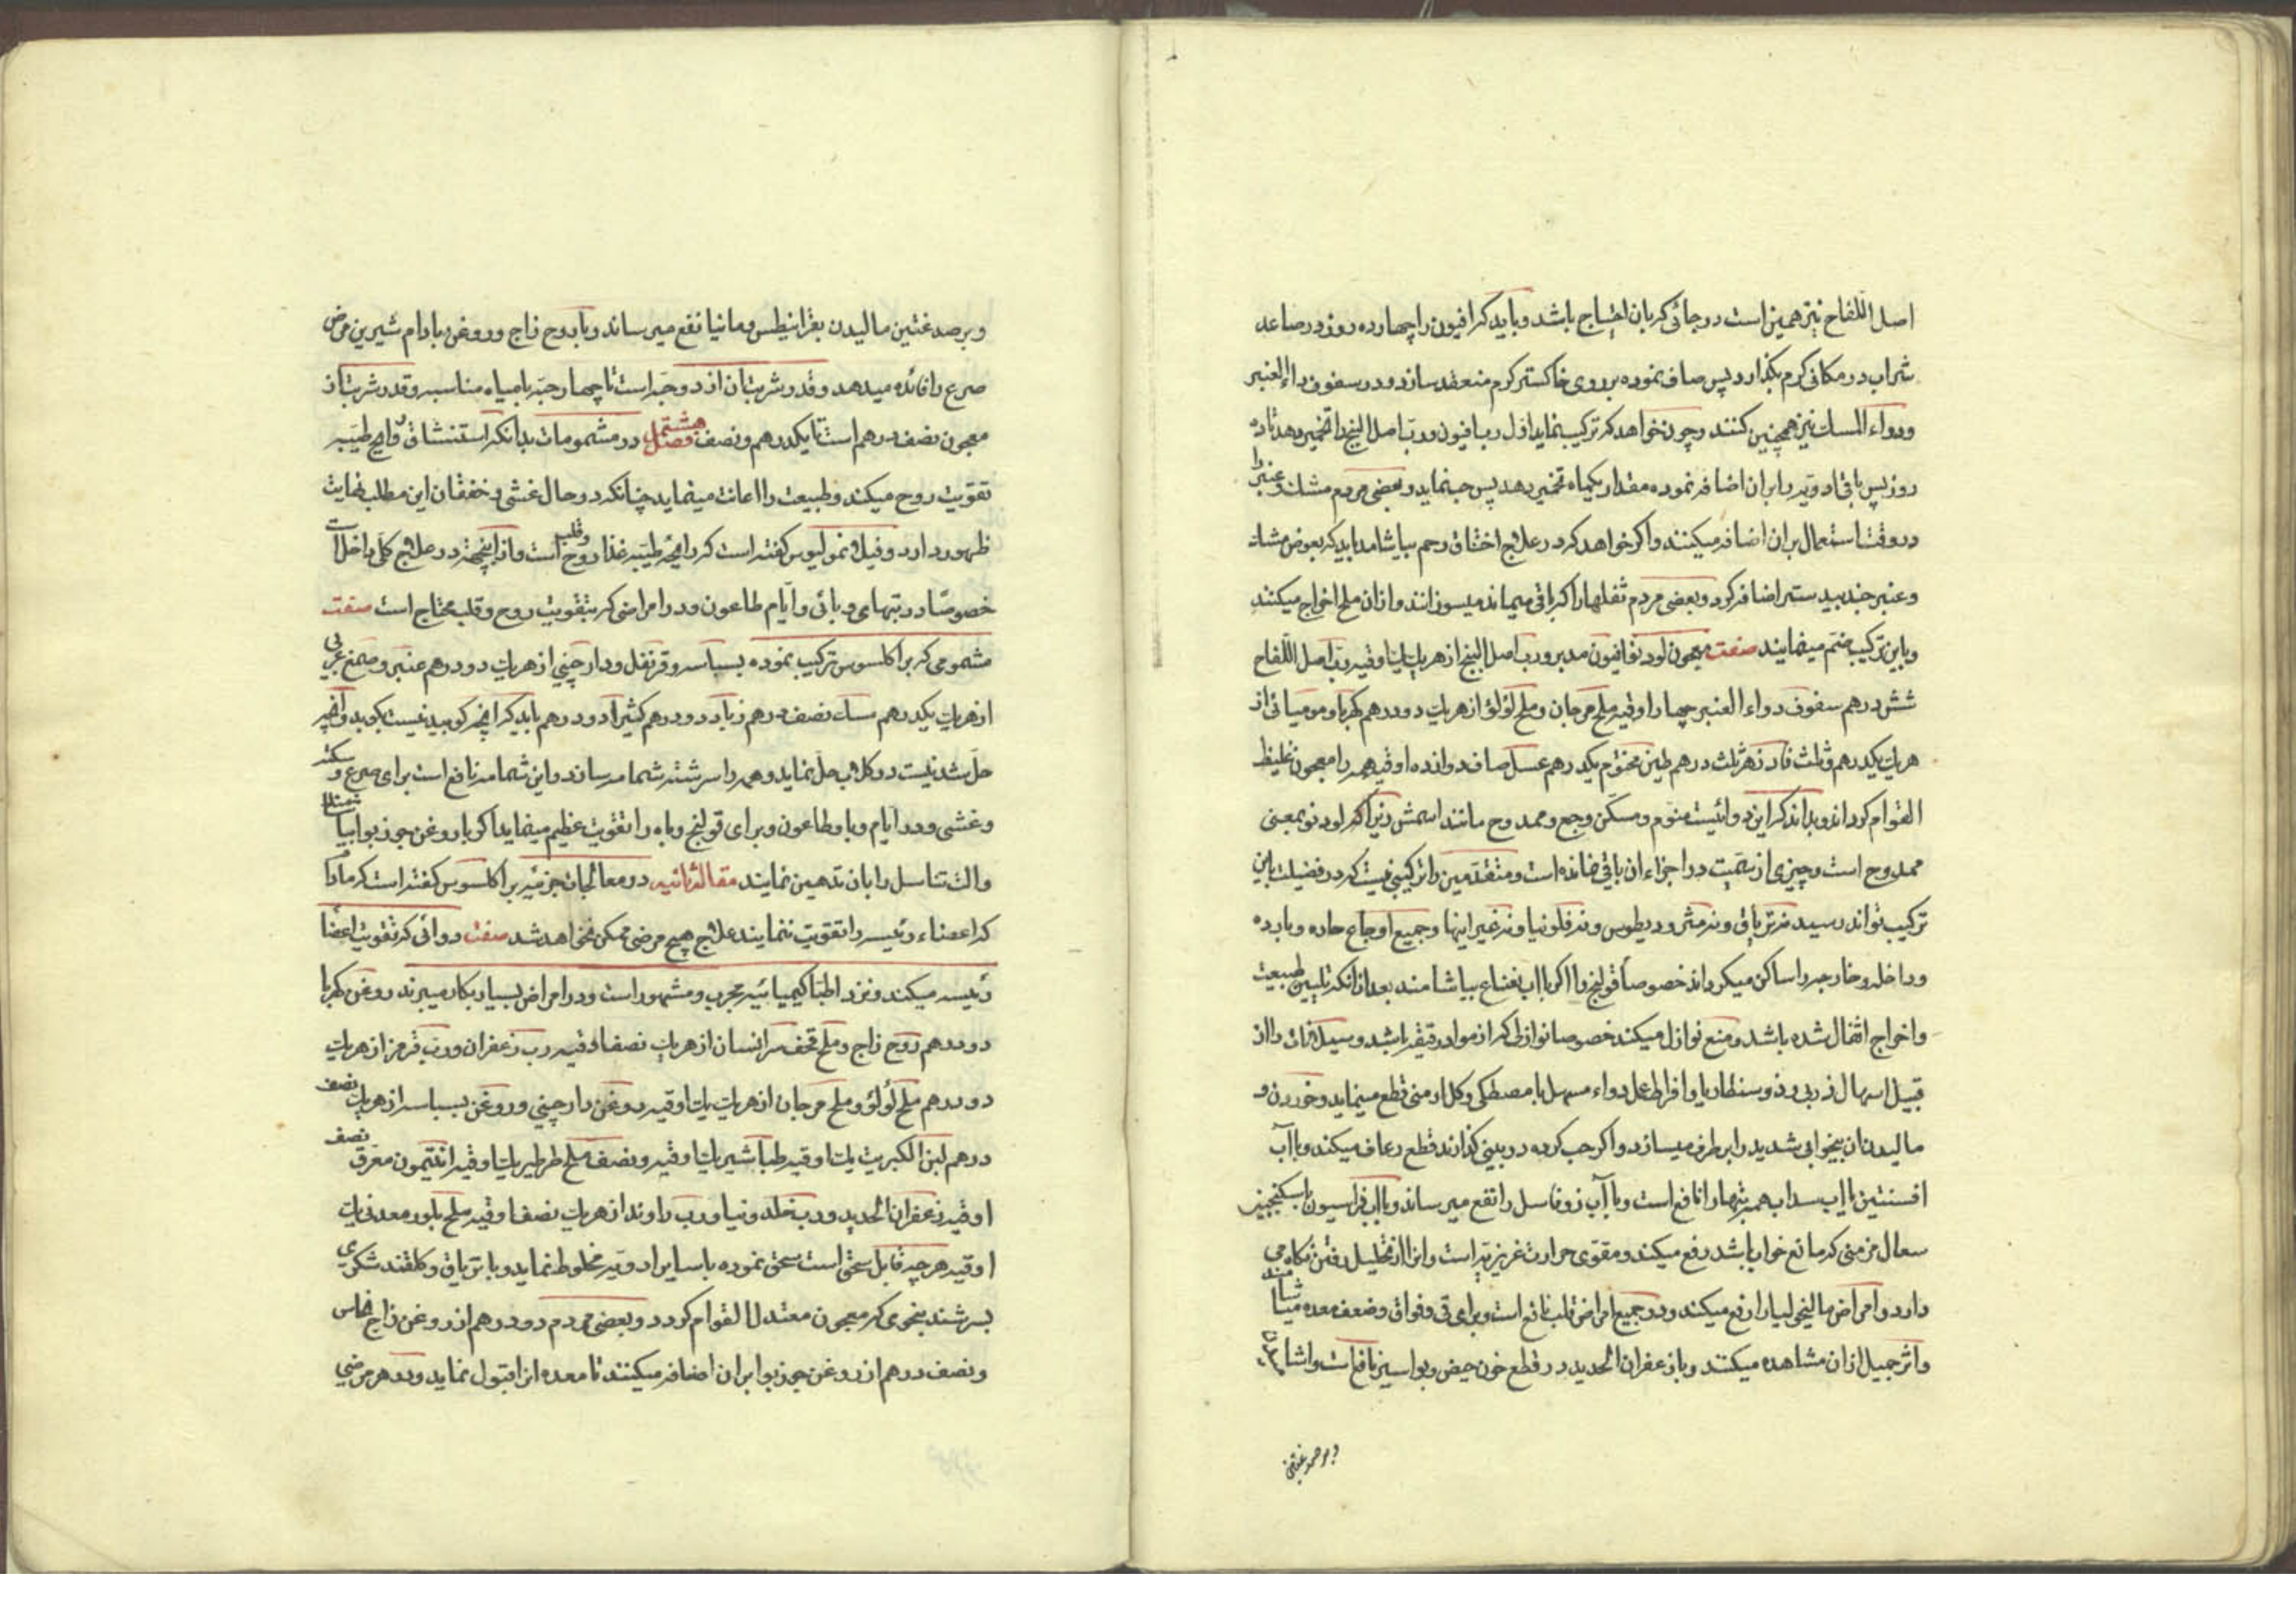 اصل اللفاح نیز همین است در جائی که بان احتیاج باشد و باید که افیون را چهارده روز در صاعد
شراب در مکانی کرم بکذارد پس صاف نموده بر روی خاکستر کرم منعقد سازد و در سفوف داء العنبر
ودواء المسک نیز همچنین کنند و چون خواهد که ترکیب نماید اول رب افیون ورب اصل البنج را تخمیر دهد تا ده
روز پس باقی ادویه را بران اضافه نموده مقدار یکماه تخمیر دهد پس حب نماید و بعضی مردم مشک و عنبر را
در وقت استعمال بران اضافه میکنند و اکر خواهد که در علاج اختناق رحم بیاشامد باید که بعوض مشک
وعنبر جندبیدستر اضافه کرد و بعضی مردم ثفلها را که باقی میماند میسوزانند و ازان ملح اخراج میکنند
وباین ترکیب ضم مینمایند صفت معجون لودنو افیون مدبر ورب اصل البنج از هریک یک اوقیه ورب اصل اللفاح
شش درهم سفوف دواء العنبر چهار اوقیه ملح مرجان و ملح لؤلؤ از هریک دو درهم کهربا و مومیائی از
هریک یکدرهم و ثلث فادزهر ثلث درهم طین مختوم یکدرهم عسل صاف دوازده اوقیه همه را معجون غلیظ
القوام کرداند و بداند که این دوائیست منوم و مسکن وجع و ممدوح مانند اسمش زیرا که لودنو بمعنی
ممدوح است و چیزی از سمیت در اجزاء ان باقی نمانده است و متقدمین را ترکیبی نیست که در فضیلت باین
ترکیب تواند رسید نه تریاق و نه مثرودیطوس و نه فلونیا و نه غیر اینها و جمیع اوجاع حاده و بارده
وداخله و خارجه را ساکن میکرداند خصوصاً قولنج را اکر با اب نعناع بیاشامند بعد از انکه تلیین طبیعت
واخراج اثفال شده باشد و منع نوازل میکند خصوصا نوازلی که از مواد رقیقه باشد و سیلانات را از
قبیل اسهال ذرب و ذوسنطاریا و افراط عمل دواء مسهل با مصطکی و کل ارمنی قطع مینماید و خوردن و
مالیدن ان بیخوابی شدید را برطرف میسازد و اکر حب کرده در بینی کذارند قطع رعاف میکند و با آب
افسنتین یا اب سداب همه تبها را نافع است و با آب زوفا سل را نفع میرساند و با اب فراسیون با سکنجبین
سعال مزمنی که مانع خواب باشد رفع میکند و مقوی حرارت غریزیه است و انرا از تحلیل رفتن نکاه می
دارد و امراض مالیخولیا را رفع میکند و در جمیع امراض قلب نافع است و برای قی و فواق و ضعف معده میاشامند
واثر جمیل ازان مشاهده میکنند و با زعفران الحدید در قطع خون حیض و بواسیر نافع است و اشا
وبرصدغین
وبر صدغین مالیدن بقرانیطس و مانیا نفع میرساند و با روح زاج و روغن بادام شیرین مرض
صرع را فائده میدهد و قدر شربت ان از دو حبه است تا چهار حبه با میاه مناسبه و قدر شربت از
معجون نصف درهم است تا یکدرهم و نصف فصل هشتم در مشمومات بدانکه استنشاق روایح طیبه
تقویت روح میکند و طبیعت را اعانت مینماید چنانکه در حال غشی و خفقان این مطلب نهایت
ظهور دارد و فیلانمولیوس کفته است که رایحه طیبه غذا روح و قلب است و از اینجهة در علاج کل داخل است
خصوصاً در تبهای وبائی و ایام طاعون و در امراضی که بتقویت روح و قلب محتاج است صفت
مشمومی که براکلسوس ترکیب نموده بسباسه و قرنفل و دارچینی از هریک دو درهم عنبر و صمغ عربی
از هریک یکدرهم مسک نصف درهم زباد دو درهم کثیرا دو درهم باید که انچه کوبیدنیست بکوبد و انچه
حل شدنیست در کلاب حل نماید و همه را سرشته شمامه سازد و این شمامه نافع است برای صرع و سکته
وغشی و در ایام وبا و طاعون و برای قولنج و باه را تقویت عظیم مینماید اکر با روغن جوزبوا بیاشامند
والت تناسل را بان تدهین نمایند مقاله ثانیه در معالجات جزئیه براکلسوس کفته است که مادام
که اعضاء رئیسه را تقویت ننمایند علاج هیچ مرضی ممکن نخواهد شد صفت دوائی که تقویت اعضا
رئیسه میکند و نزد اطبا کیمیائیه مجرب و مشهور است و در امراض بسیار بکار میبرند روغن کهربا
دو درهم روح زاج و ملح قحف سر انسان از هریک نصف اوقیه رب زعفران و رب قرمز از هریک
دو درهم ملح لؤلؤ و ملح مرجان از هریک یک اوقیه روغن دارچینی و روغن بسباسه از هریک نصف
درهم لبن الکبریت یک اوقیه طباشیر یک اوقیه و نصف ملح طرطیر یک اوقیه انتیمون معرق نصف
اوقیه زعفران الحدید و رب خلدونیا و رب راوند از هریک نصف اوقیه ملح بلور معدنی یک
اوقیه هرچه قابل سحق است سحق نموده با سایر ادویه مخلوط نماید و با تریاق و کلقند شکری
بسرشند بنحوی که معجون معتدل القوام کردد و بعضی مردم دو درهم از روغن زاج نحاس
ونصف درهم از روغن جوزبوا بران اضافه میکنند تا معده انرا قبول نماید و در هر مرضی